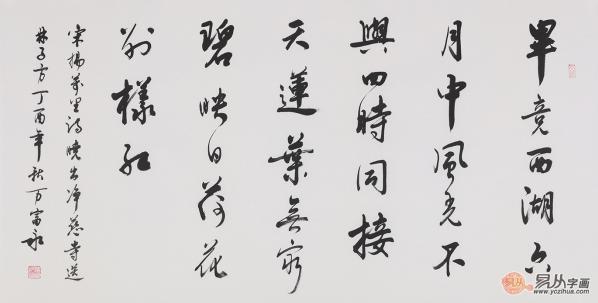 畢竟西湖六
月中風光不
與四時同接
天蓮葉無窮
碧映日荷花
别樣紅
宋楊萬里詩曉出净慈寺送
林子方丁酉年秋万富永
易从字画
www.yczihua.com